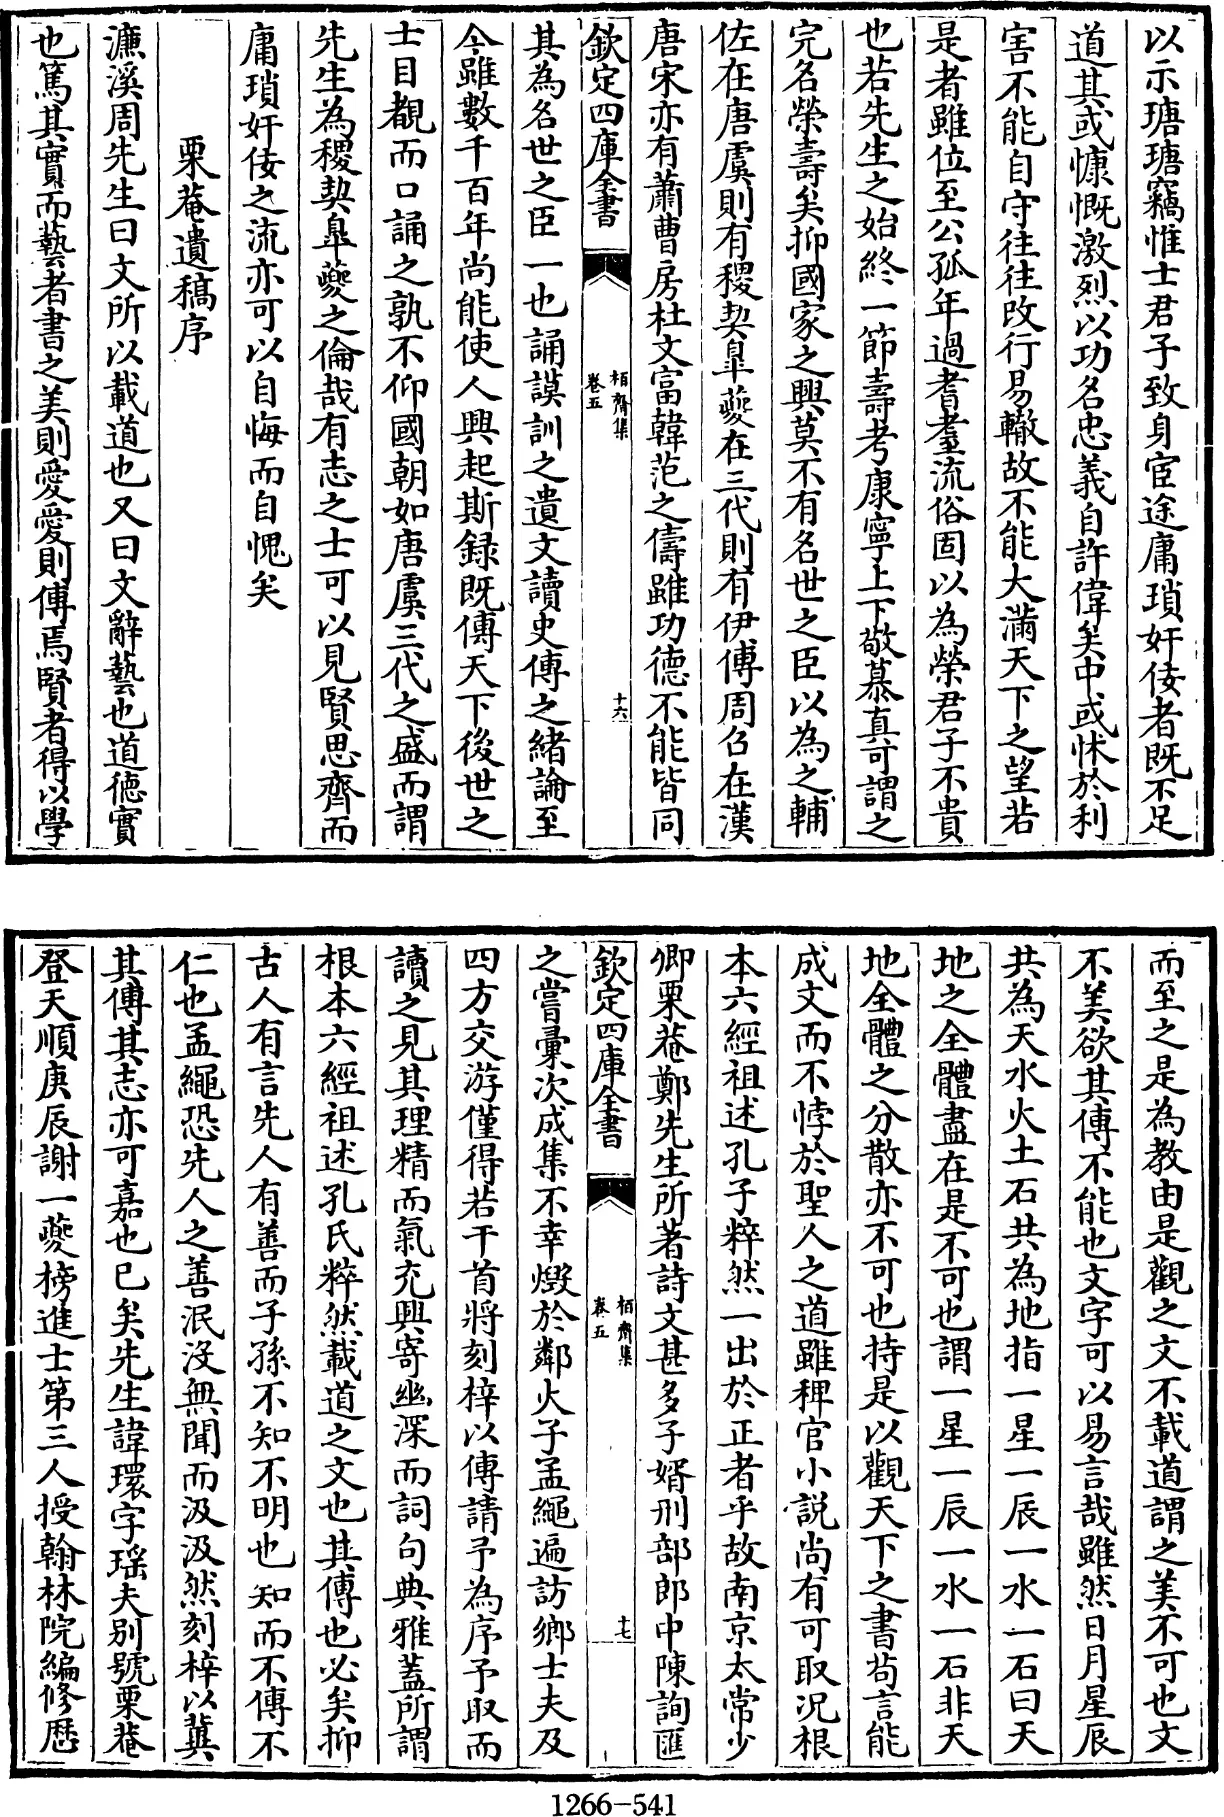 以示瑭瑭竊惟士君子致身宦途庸瑣奸佞者既不足
道其或慷慨激烈以功名忠義自許偉矣中或怵於利
害不能自守往往改行易轍故不能大滿天下之望若
是者雖位至公孤年過耆耋流俗固以為榮君子不貴
也若先生之始終一節壽考康寧上下敬慕真可謂之
完名榮壽矣抑國家之興莫不有名世之臣以為之輔
佐在唐虞則有稷契臯夔在三代則有伊傅周召在漢
唐宋亦有蕭曹房杜文富韓范之儔雖功德不能皆同
欽定四庫全書
栢齋集
卷五
十六
其為名世之臣一也誦謨訓之遺文讀史傳之緒論至
今雖數千百年尚能使人興起斯録既傳天下後世之
士目覩而口誦之孰不仰國朝如唐虞三代之盛而謂
先生為稷契臯夔之倫哉有志之士可以見賢思齊而
庸瑣奸佞之流亦可以自悔而自愧矣
栗菴遺稿序
濂溪周先生曰文所以載道也又曰文辭藝也道德實
也篤其實而藝者書之美則愛愛則傳焉賢者得以學
而至之是為教由是觀之文不載道謂之美不可也文
不美欲其傳不能也文字可以易言哉雖然日月星辰
共為天水火土石共為地指一星一辰一水一石曰天
地之全體盡在是不可也謂一星一辰一水一石非天
地全體之分散亦不可也持是以觀天下之書苟言能
成文而不悖於聖人之道雖稗官小說尚有可取况根
本六經祖述孔子粹然一出於正者乎故南京太常少
卿栗菴鄭先生所著詩文甚多子婿刑部郎中陳詢匯
欽定四庫全書
栢齋集
卷五
十七
之嘗彚次成集不幸燬於鄰火子孟繩遍訪鄉士夫及
四方交游僅得若干首將刻梓以傳請予為序予取而
讀之見其理精而氣充興寄幽深而詞句典雅蓋所謂
根本六經祖述孔氏粹然載道之文也其傳也必矣抑
古人有言先人有善而子孫不知不明也知而不傳不
仁也孟繩恐先人之善泯沒無聞而汲汲然刻梓以冀
其傳其志亦可嘉也已矣先生諱環字瑶夫別號栗菴
登天順庚辰謝一夔榜進士第三人授翰林院編修歷
1266-541